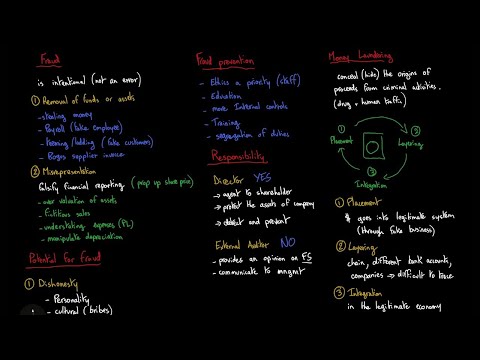 Fraud
is intentional (not an error)
① Removal of funds or assets
- stealing money
- Payroll (fake employee)
- Teeming/lading (fake customers)
- Bogus supplier invoice
② Misrepresentation
falsify financial reporting (prop up share price)
- over valuation of assets
- Fictitious sales
- understating expenses (PL)
- manipulate depreciation
Potential for fraud
① Dishonesty
- Personality
- cultural (bribes)
Fraud prevention
- Ethics a priority (staff)
- Education
- more Internal controls
- Training
- segregation of duties
Responsibility
Director YES
→ agent to shareholder
→ protect the assets of company
→ detect and prevent
External Auditor NO
- provides an opinion on FS
- communicate to mngmt
Money Laundering
conceal (hide) the origins of
proceeds from criminal activities.
(drug + human traffic)
①
Placement
②
Layering
③
Integration
① Placement
$ goes into legitimate system
(through fake business)
② Layering
chain, different bank accounts,
companies → difficult to trace
③ Integration
in the legitimate economy